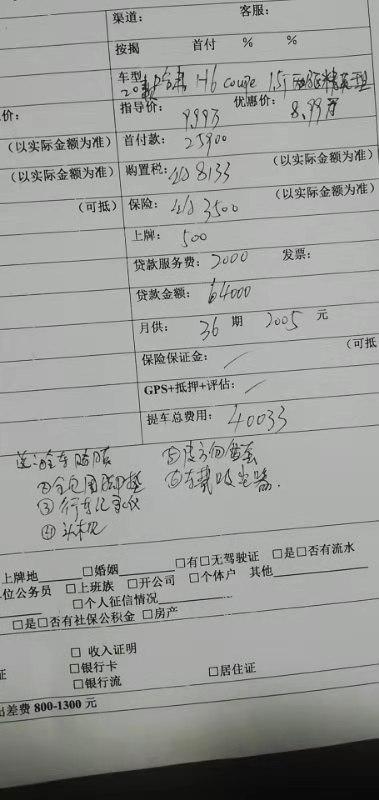 渠道： 客服：
按揭 首付 % %
车型 20款哈弗 H6 coupe 1.5T 两驱精英型
价： 指导价： 9.99万 优惠价： 8.99万
（以实际金额为准） 首付款： 25900
（以实际金额为准） 购置税： 8133 （以实际金额为准）
（可抵） 保险： 3500 （以实际金额为准）
上牌： 500
贷款服务费： 2000 发票：
贷款金额： 64000
月供： 36 期 2005 元
保险保证金： / （可抵
GPS+抵押+评估： /
提车总费用： 40033
送①全车贴膜 ⑤皮方向盘套
②全包围脚垫 ⑥车载吸尘器
③行车记录仪
④头枕
上牌地 □婚姻 □有□无驾驶证 □是□否有流水
位公务员 □上班族 □开公司 □个体户 其他
□个人征信情况
□是□否有社保公积金 □房产
□ 收入证明
证 □银行卡 □居住证
□银行流
出差费 800-1300 元